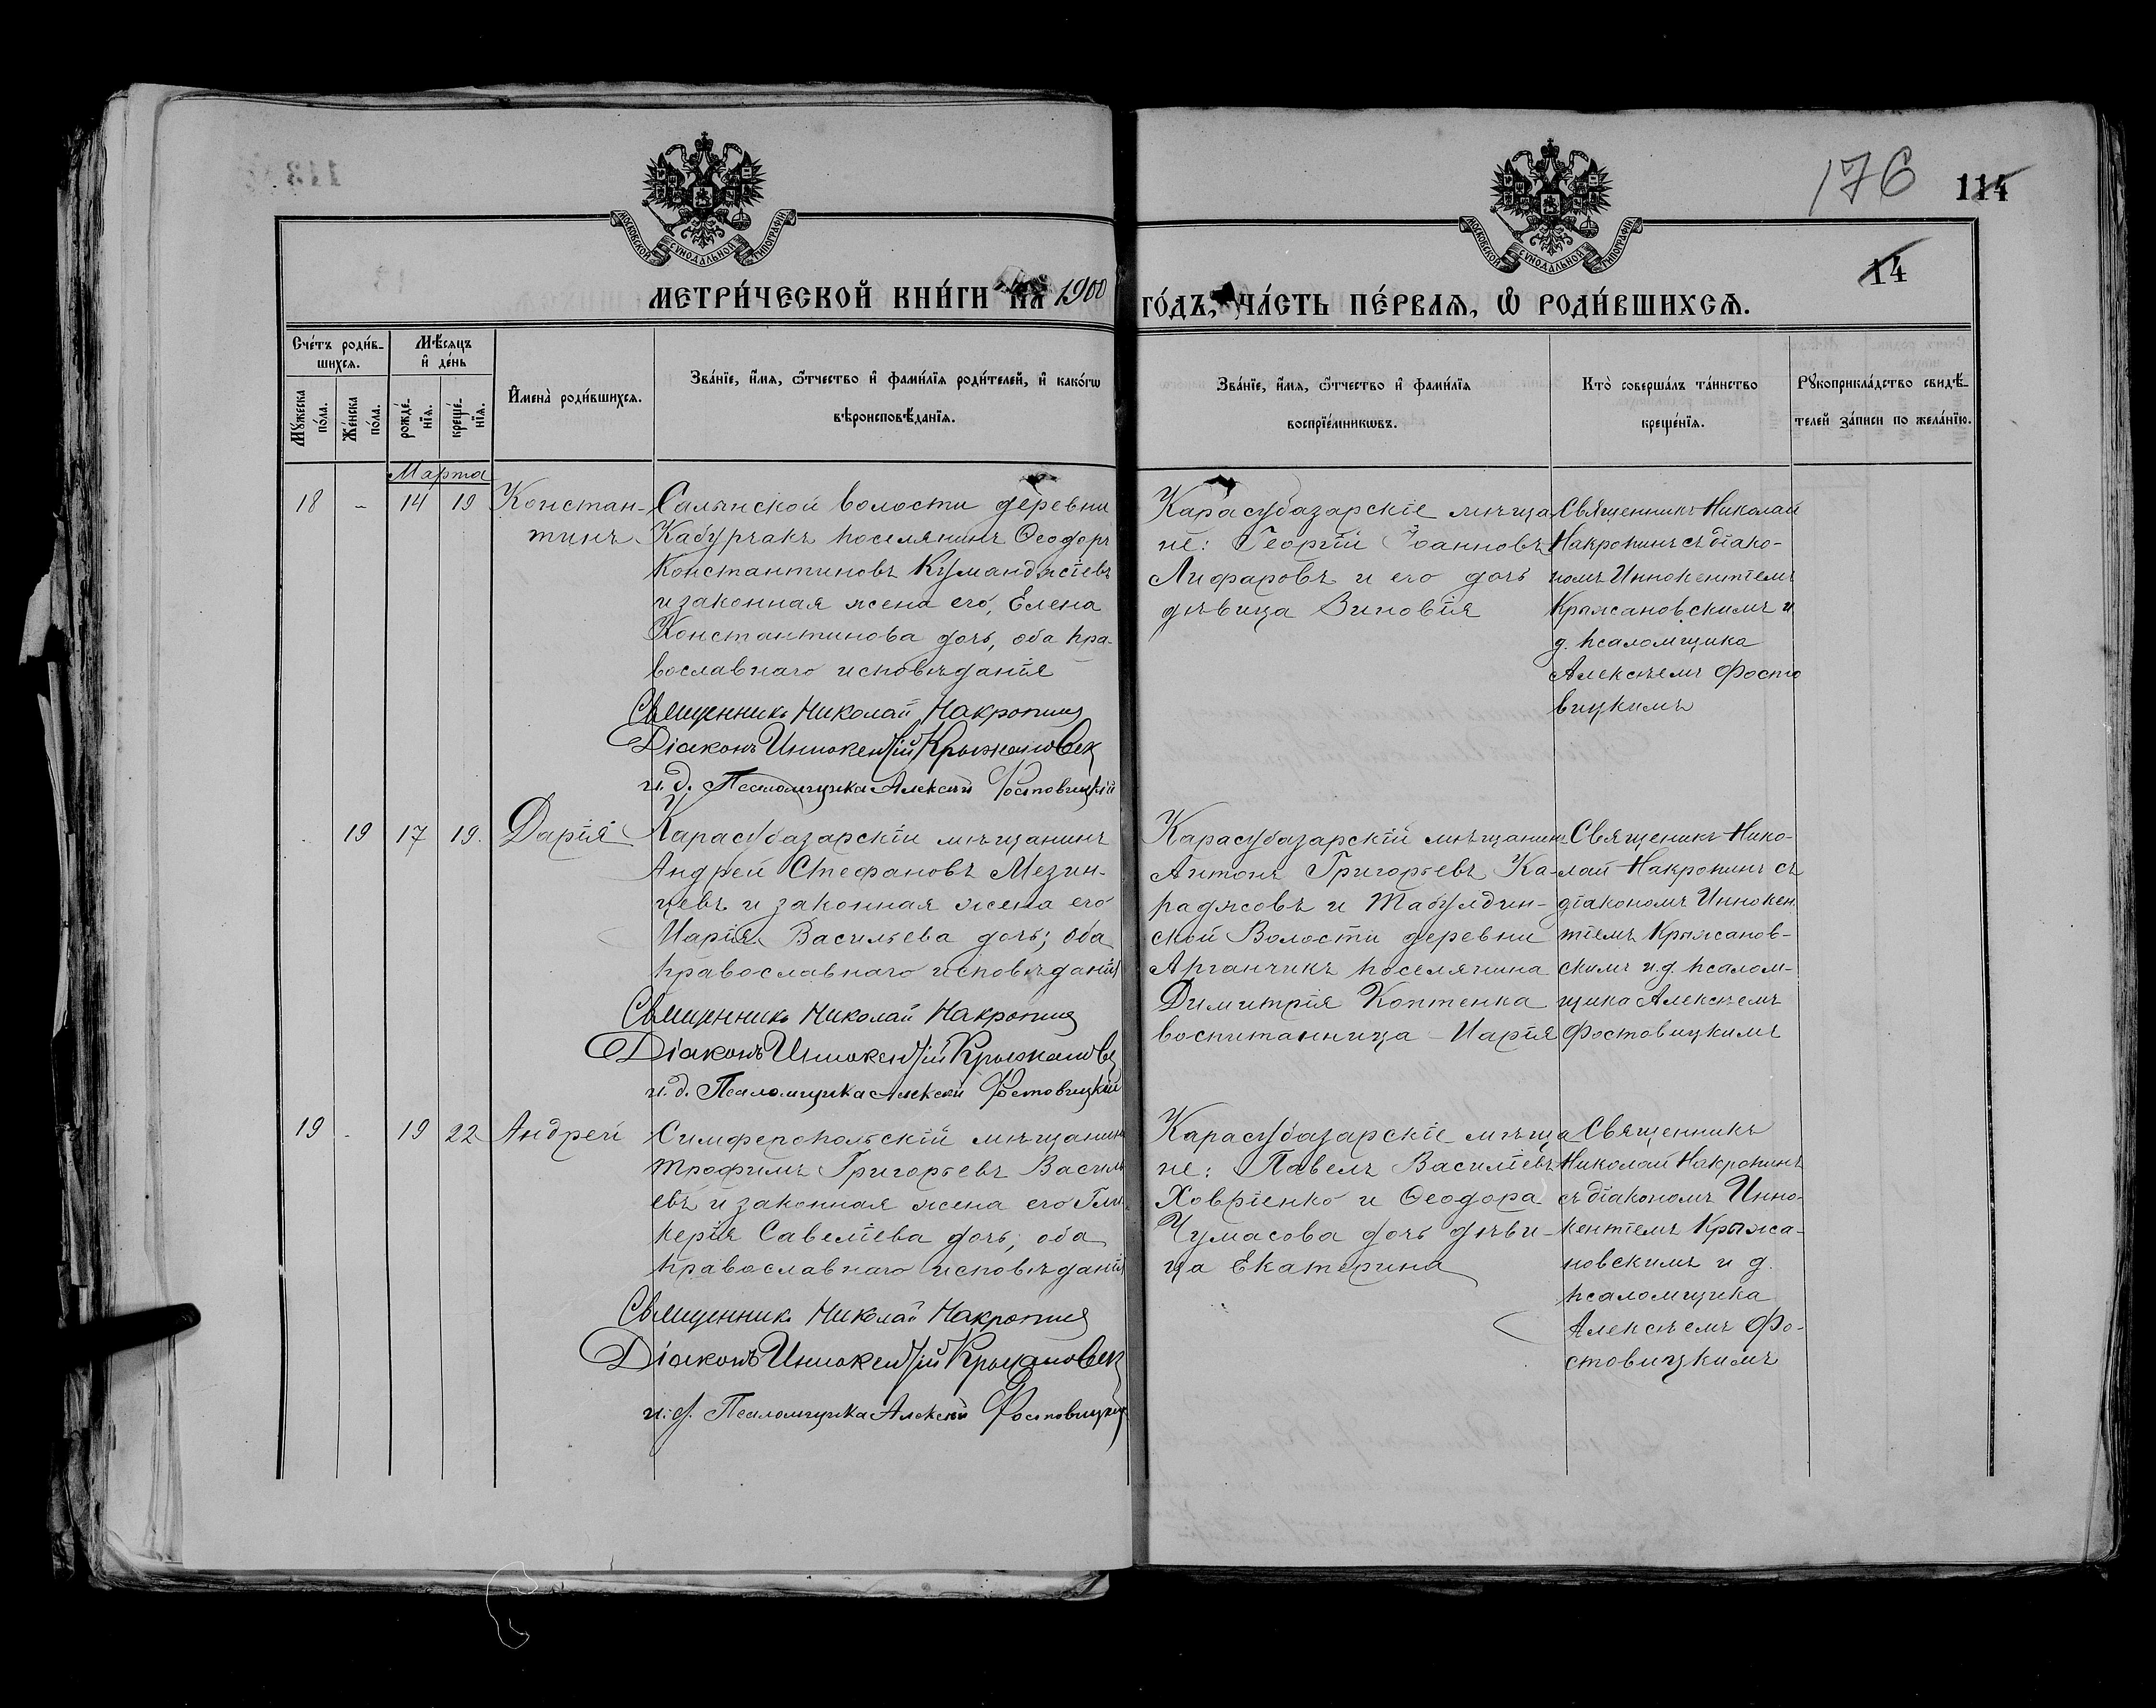 176
114
14
МОСКОВСКОЙ СУНОДАЛЬНОЙ ТИПОГРАФІИ
МОСКОВСКОЙ СУНОДАЛЬНОЙ ТИПОГРАФІИ
МЕТРИ́ЧЕСКОЙ КНИ́ГИ НА 1900 ГО́ДЪ, ЧА́СТЬ ПЕ́РВАѦ, Ѡ РОДИ́ВШИХСѦ.
Сче́тъ роди́в-
шихсѧ.
Мѣ́сѧцъ
и҆ де́нь
Мꙋ́жеска
по́ла.
Же́нска
по́ла.
рожде́-
нїѧ.
креще́-
нїѧ.
И҆мена̀ роди́вшихсѧ.
Зва́нїе, и҆́мѧ, ѻ҆́тчество и҆ фами́лїѧ роди́телей, и҆ како́гѡ
вѣроисповѣ́данїѧ.
Зва́нїе, и҆́мѧ, ѻ҆́тчество и҆ фами́лїѧ
воспрїе́мникѡвъ.
Кто̀ соверша́лъ та́инство
креще́нїѧ.
Рꙋкоприкла́дство свидѣ́-
телей за́писи по жела́нїю.
Марта
18 - 14 19 Констан-
тинъ
Салынской волости деревни
Кабурчакъ поселянинъ Ѳеодоръ
Константиновъ Куманджіевъ
и законная жена его, Елена
Константинова дочь, оба пра-
вославнаго исповѣданія
Священникъ Николай Накропинъ
Діаконъ Иннокентій Крыжановск
и. д. Псаломщика Алексѣй Фостовицкій
Карасубазарскіе мѣща
не: Георгій Іоанновъ
Лифаровъ и его дочь
дѣвица Зиновія
Священникъ Николай
Накропинъ съ діако-
номъ Иннокентіемъ
Крыжановскимъ и
д. псаломщика
Алексѣемъ Фосто
вицкимъ
19 17 19. Дарія
Карасубазарскій мѣщанинъ
Андрей Стефановъ Мезин-
цевъ и законная жена его
Марія Васильева дочь; оба
православнаго исповѣданія
Священникъ Николай Накропинъ
Діаконъ Иннокентій Крыжановс
и. д. Псаломщика Алексѣй Фостовицкій
Карасубазарскій мѣщанинъ
Антонъ Григорьевъ Ка-
раджовъ и Табулдин-
ской Волости деревни
Арганчикъ поселянина
Димитрія Коптенка
воспитанница - Марія
Священикъ Нико-
лай Накропинъ съ
діакономъ Иннокен
тіемъ Крыжанов-
скимъ и д. псалом-
щика Алексѣемъ
Фостовицкимъ
19 - 19 22 Андрей
Симферопольскій мѣщанинъ
Трофимъ Григорьевъ Василь
евъ и законная жена его Гли-
керія Савеліева дочь; оба
православнаго исповѣданія
Священникъ Николай Накропинъ
Діаконъ Иннокентій Крыжановск
и. д. Псаломщика Алексѣй Фостовицкій
Карасубазарскіе мѣща
не: Павелъ Василіевъ
Ховріенко и Ѳеодора
Чумасова дочь дѣви-
ца Екатерина
Священникъ
Николай Накропинъ
съ діакономъ Инно-
кентіемъ Крыжа-
новскимъ и д.
псаломщика
Алексѣемъ Фо-
стовицкимъ